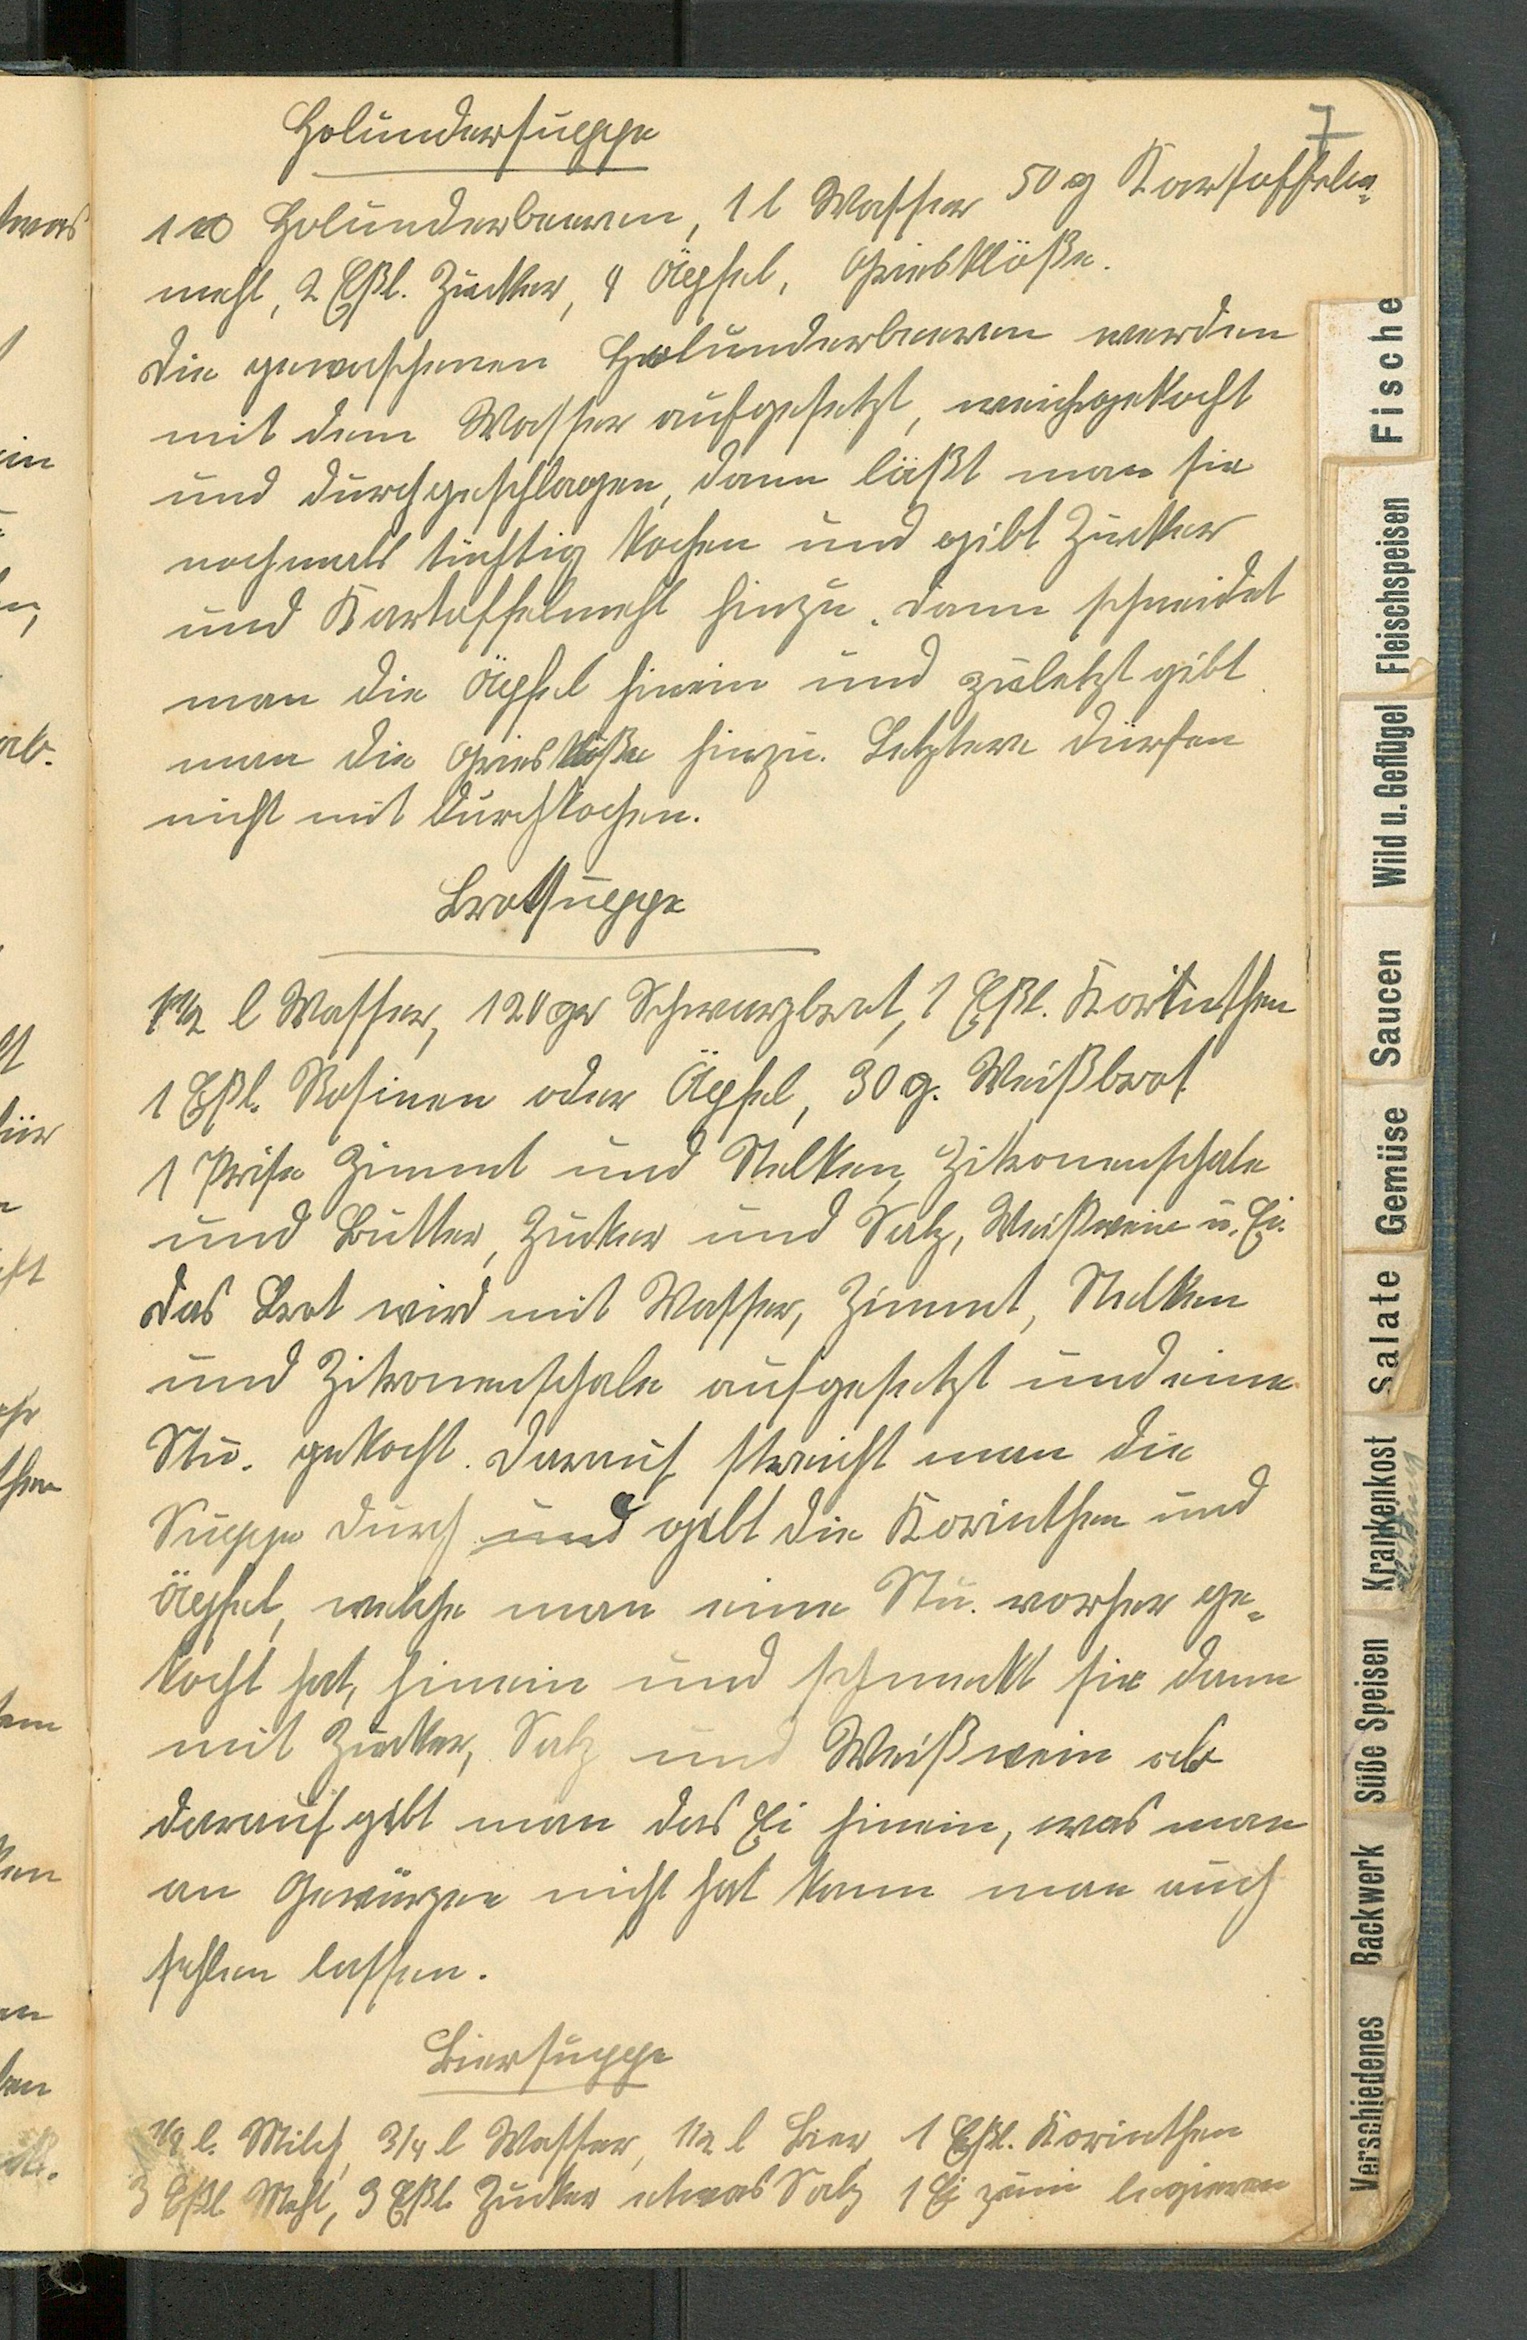 7
Holundersuppe
100 Holunderbeeren, 1 l Wasser 50 g Kartoffeln-
mehl, 2 Eßl. Zucker, 4 Äpfel, Griesklöße.
Die gewaschenen Holunderbeeren werden
mit dem Wasser aufgesetzt, weichgekocht
und durchgeschlagen, dann läßt man sie
nochmals tüchtig kochen und gibt Zucker
und Kartoffelmehl hinzu. Dann schneidet
man die Äpfel hinein und zuletzt gibt
man die Griesklöße hinzu. Letztere dürfen
nicht mit durchkochen.
Brotsuppe
1 1/2 l Wasser, 120 gr Schwarzbrot, 1 Eßl. Korinthen
1 Eßl. Rosinen oder Äpfel, 30 g. Weißbrot
1 Prise Zimmt und Nelken, Zitronenschale
und Butter, Zucker und Salz, Weißwein u. Ei.
Das Brot wird mit Wasser, Zimmt, Nelken
und Zitronenschale aufgesetzt und eine
Stu. gekocht. Darauf streicht man die
Suppe durch und gibt die Korinthen und
Äpfel, welche man eine Stu. vorher ge-
kocht hat, hinein und schmeckt sie dann
mit Zucker, Salz und Weißwein ab
darauf gibt man das Ei hinein, was man
an Gewürzen nicht hat kann man auch
fehlen lassen.
Biersuppe
l. Milch, 3/4 l Wasser, 1/2 l Bier, 1 Eßl. Korinthen
3 Eßl Mehl, 3 Eßl. Zucker etwas Salz 1 Ei zum legieren
Fische
Fleischspeisen
Wild u. Geflügel
Saucen
Gemüse
Salate
Krankenkost
Süße Speisen
Backwerk
Verschiedenes